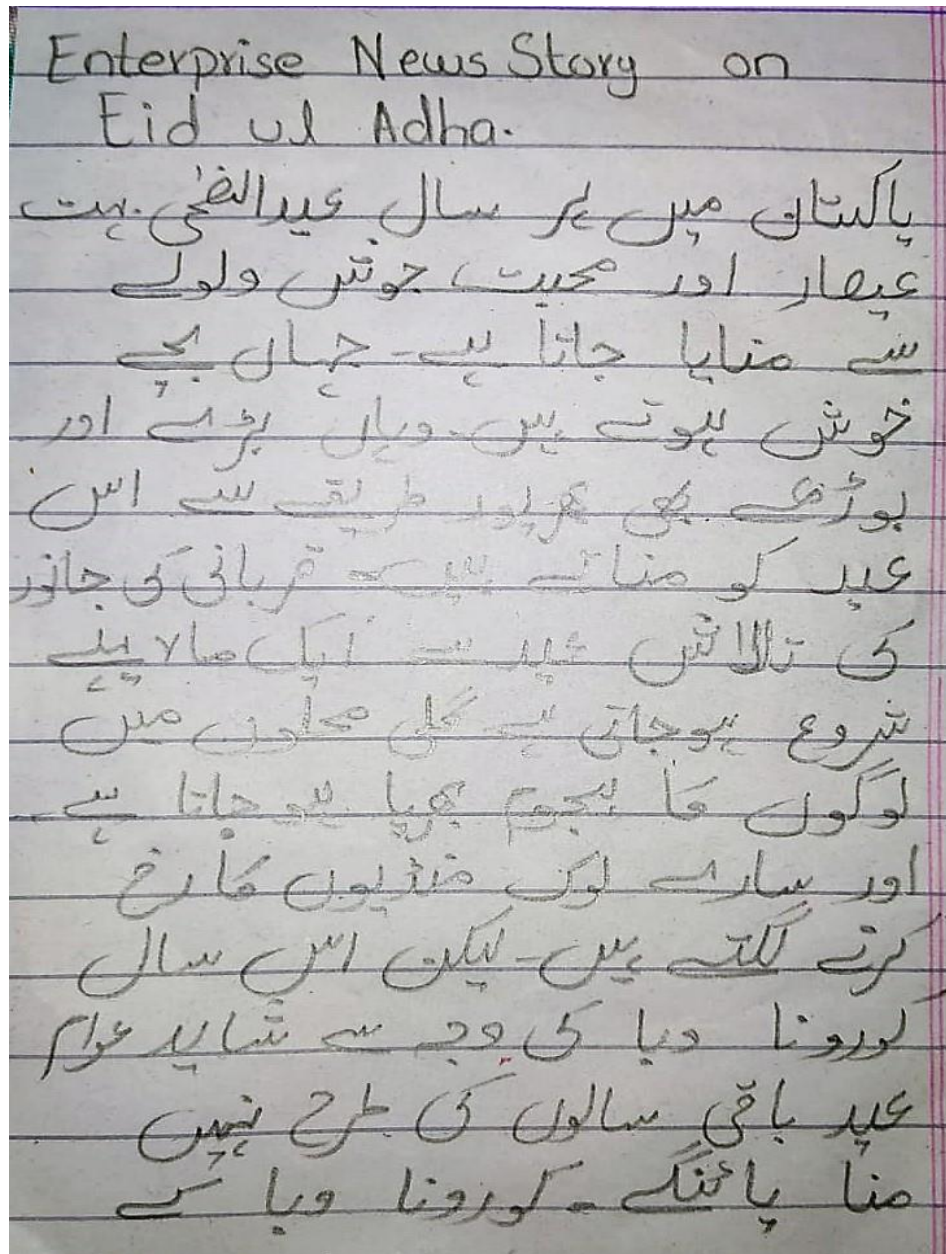 Enterprise News Story on
Eid ul Adha.
پاکستان میں ہر سال عیدالضحٰی بہت
عیصار اور محبت، جوش ولولے
سے منایا جاتا ہے۔ جہاں بچے
خوش ہوتے ہیں۔ وہاں بڑے اور
بوڑھے بھی بھرپور طریقے سے اس
عید کو مناتے ہیں۔ قربانی کی جانور
کی تلاش عید سے ایک ماہ پہلے
شروع ہوجاتی ہے گلی محلوں میں
لوگوں کا ہجوم بھرپا ہو جاتا ہے۔
اور سارے لوگ منڈیوں کا رخ
کرنے لگتے ہیں۔ لیکن اس سال
کورونا وبا کی وجہ سے شاید عوام
عید باقی سالوں کی طرح نہیں
منا پائنگے۔ کورونا وبا کے